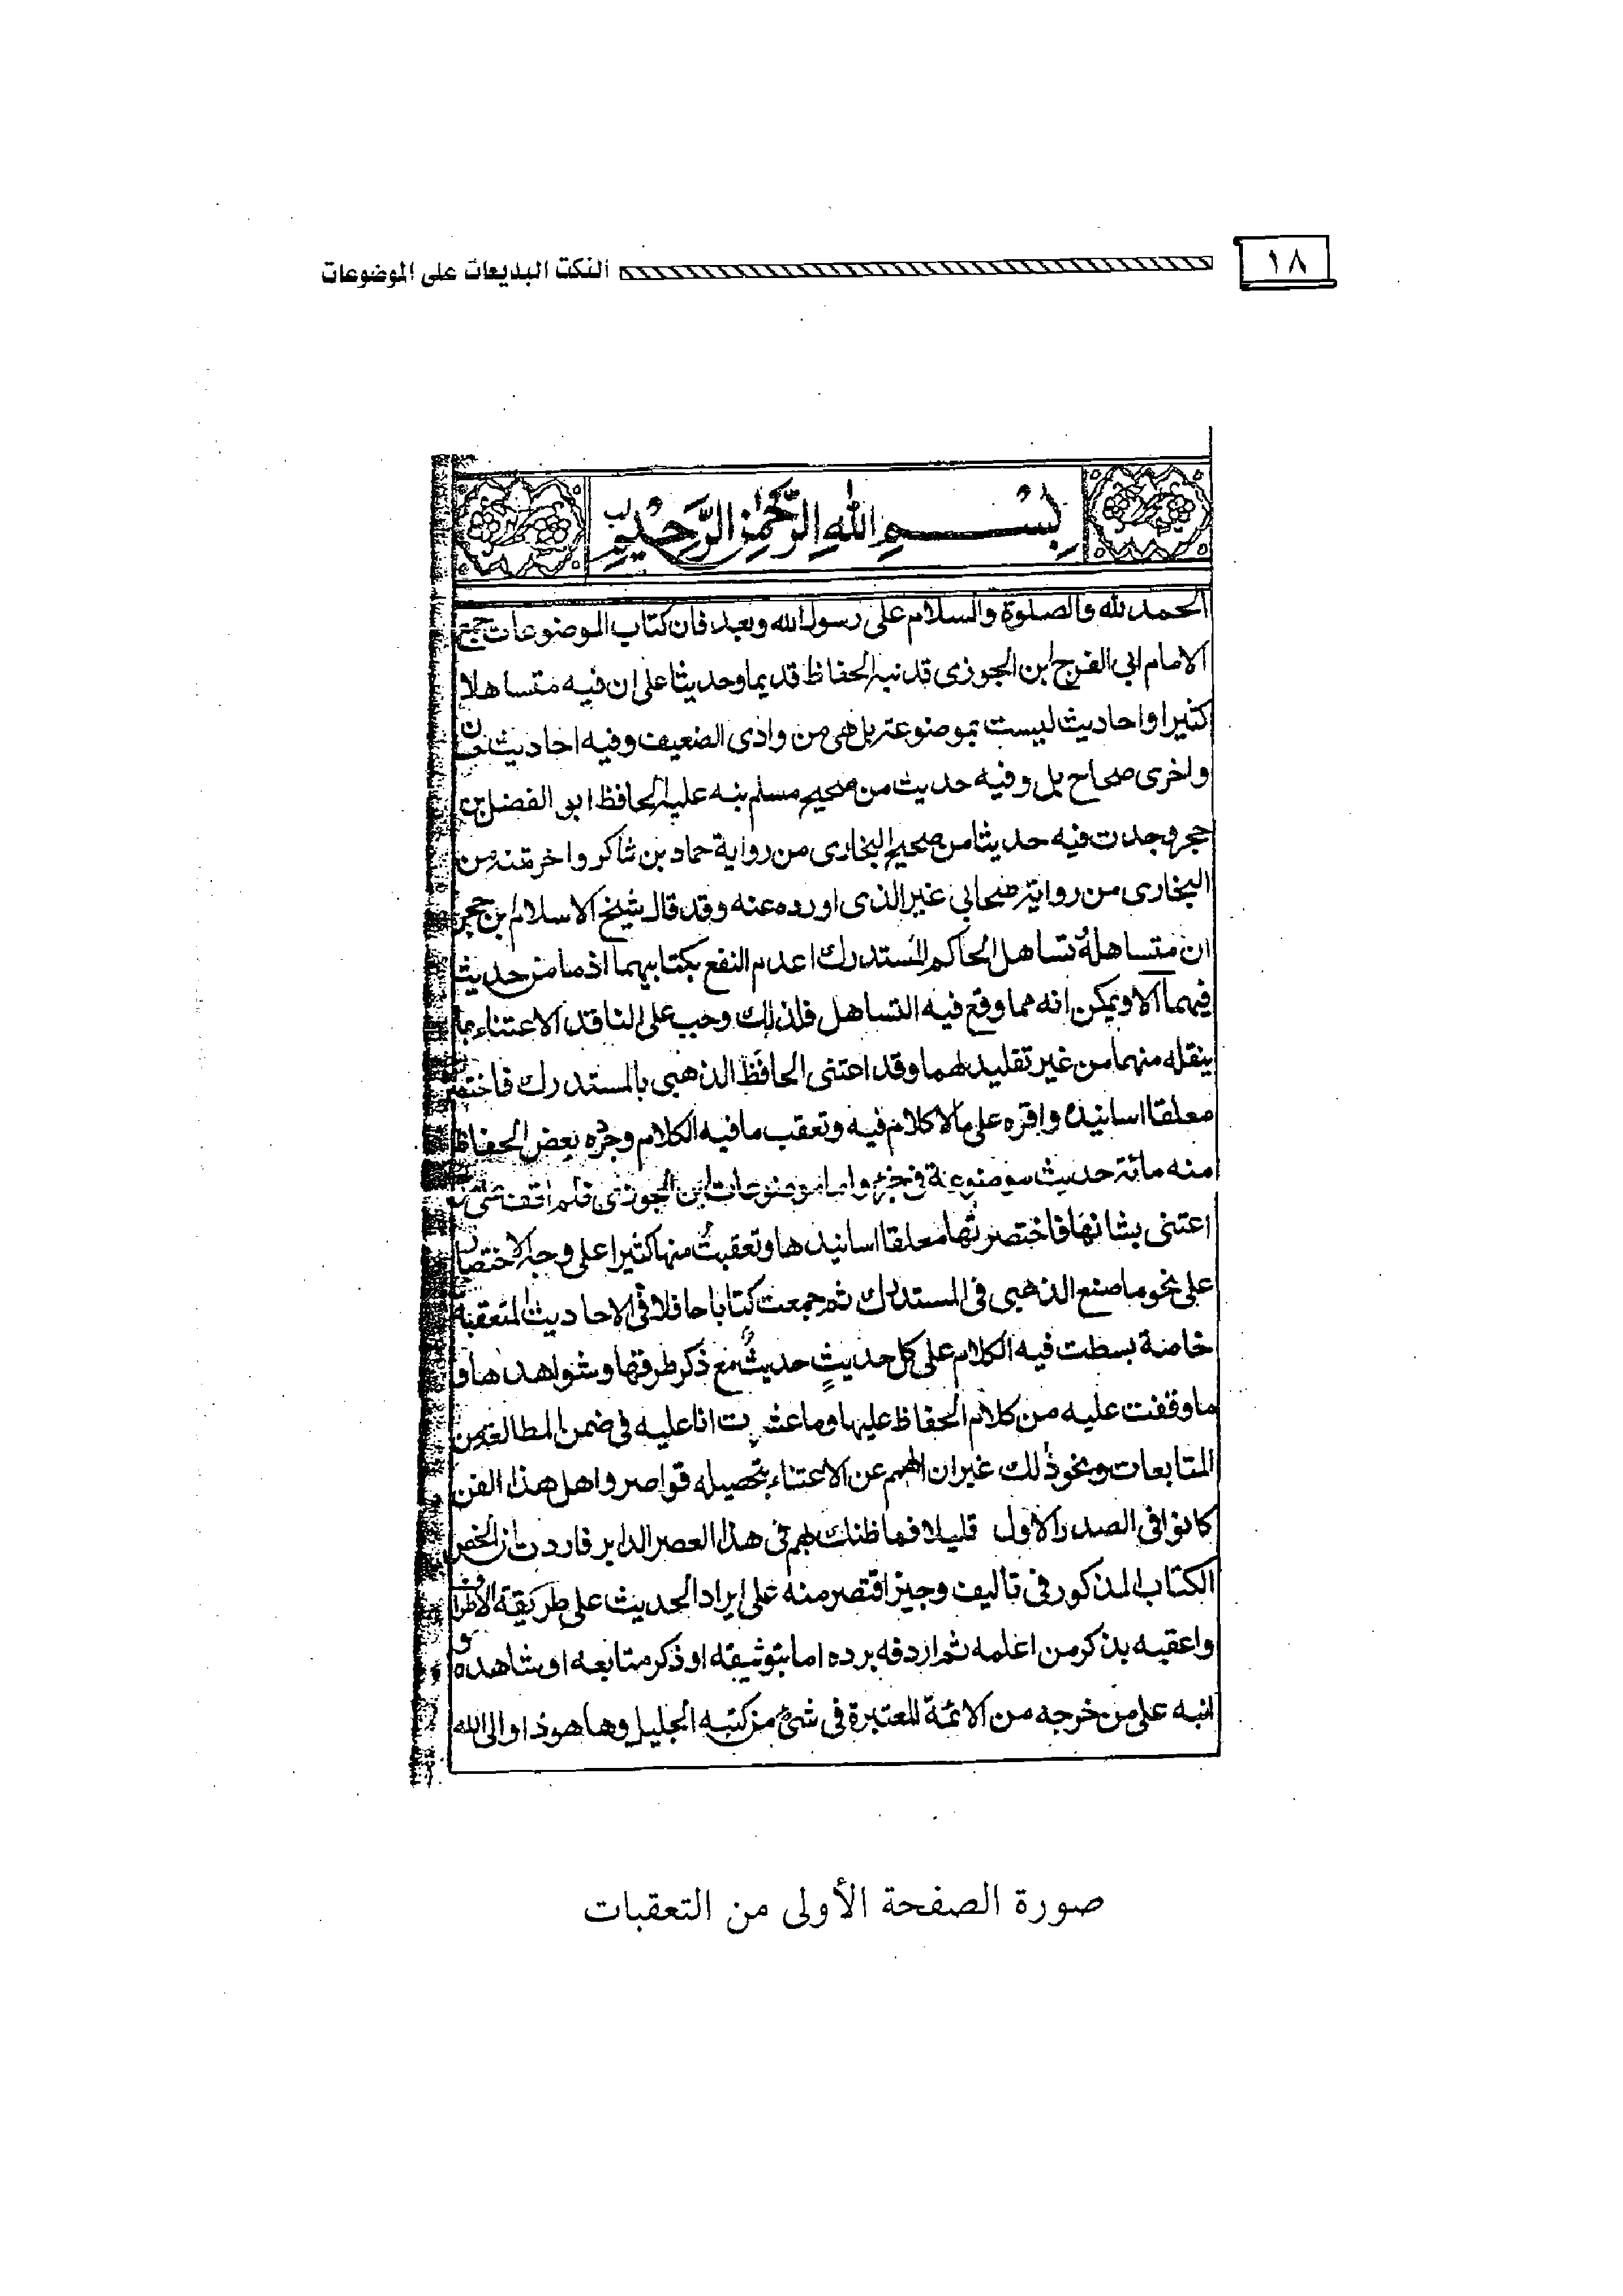 ١٨
النكت البديعات على الموضوعات
بسم الله الرحمن الرحيم
الحمد لله والصلوة والسلام على رسول الله وبعد فان كتاب الموضوعات جمع
الامام ابى الفرج ابن الجوزى قد نبه الحفاظ قديما وحديثا على ان فيه متساهلا
كثيرا واحاديث ليست بموضوعة بل هى من وادى الضعيف وفيه احاديث حسان
واخرى صحاح بل وفيه حديث من صحيح مسلم نبه عليه الحافظ ابو الفضل بن
حجر وجدت فيه حديثا من صحيح البخارى من رواية حماد بن شاكر واخر متنه من
البخارى من رواية صحابي غير الذى اورده عنه وقد قال شيخ الاسلام ابن حجر
ان متساهله تساهل الحاكم المستدرك اعدم النفع بكتابيهما اذ ما من حديث
فيهما الا ويمكن انه مما وقع فيه التساهل فلذلك وجب على الناقد الاعتناء بما
ينقله منهما من غير تقليد لهما وقد اعتنى الحافظ الذهبى بالمستدرك فاختصر
معلقا اسانيده واقره على ما لا كلام فيه وتعقب ما فيه الكلام وجرد بعض الحفاظ
منه مائة حديث موضوعة فى جزء واما موضوعات ابن الجوزى فلم اقف على من
اعتنى بشانها فاختصرتها معلقا اسانيدها وتعقبت منها كثيرا على وجه الاختصار
على نحو ما صنع الذهبى فى المستدرك ثم جمعت كتابا حافلا فى الاحاديث المتعقبة
خاصة بسطت فيه الكلام على كل حديث حديث مع ذكر طرقها وشواهدها و
ما وقفت عليه من كلام الحفاظ عليها وما عثرت انا عليه فى ضمن المطالعة من
المتابعات ونحو ذلك غير ان الهمم عن الاعتناء بتحصيله قواصر واهل هذا الفن
كانوا فى الصدر الاول قليلا فما ظنك بهم فى هذا العصر الدابر فاردت ان الخص
الكتاب المذكور فى تاليف وجيز اقتصر منه على ايراد الحديث على طريقة الاطراف
واعقبه بذكر من اعلمه ثم اردفه برده اما بتوثيقه او ذكر متابعه او شاهده و
انبه على من خرجه من الائمة المعتبرة فى شئ من كتبه الجليل وها هو ذا والى الله
صورة الصفحة الأولى من التعقبات